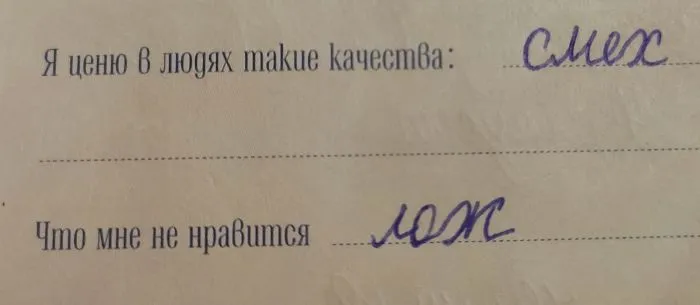 Я ценю в людях такие качества: смех
Что мне не нравится лож